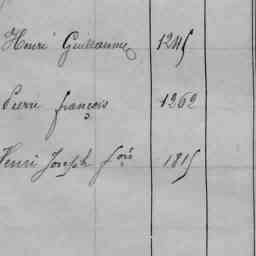 Henri Guillaume 1245
Pierre françois 1262
Henri Joseph fois 1815